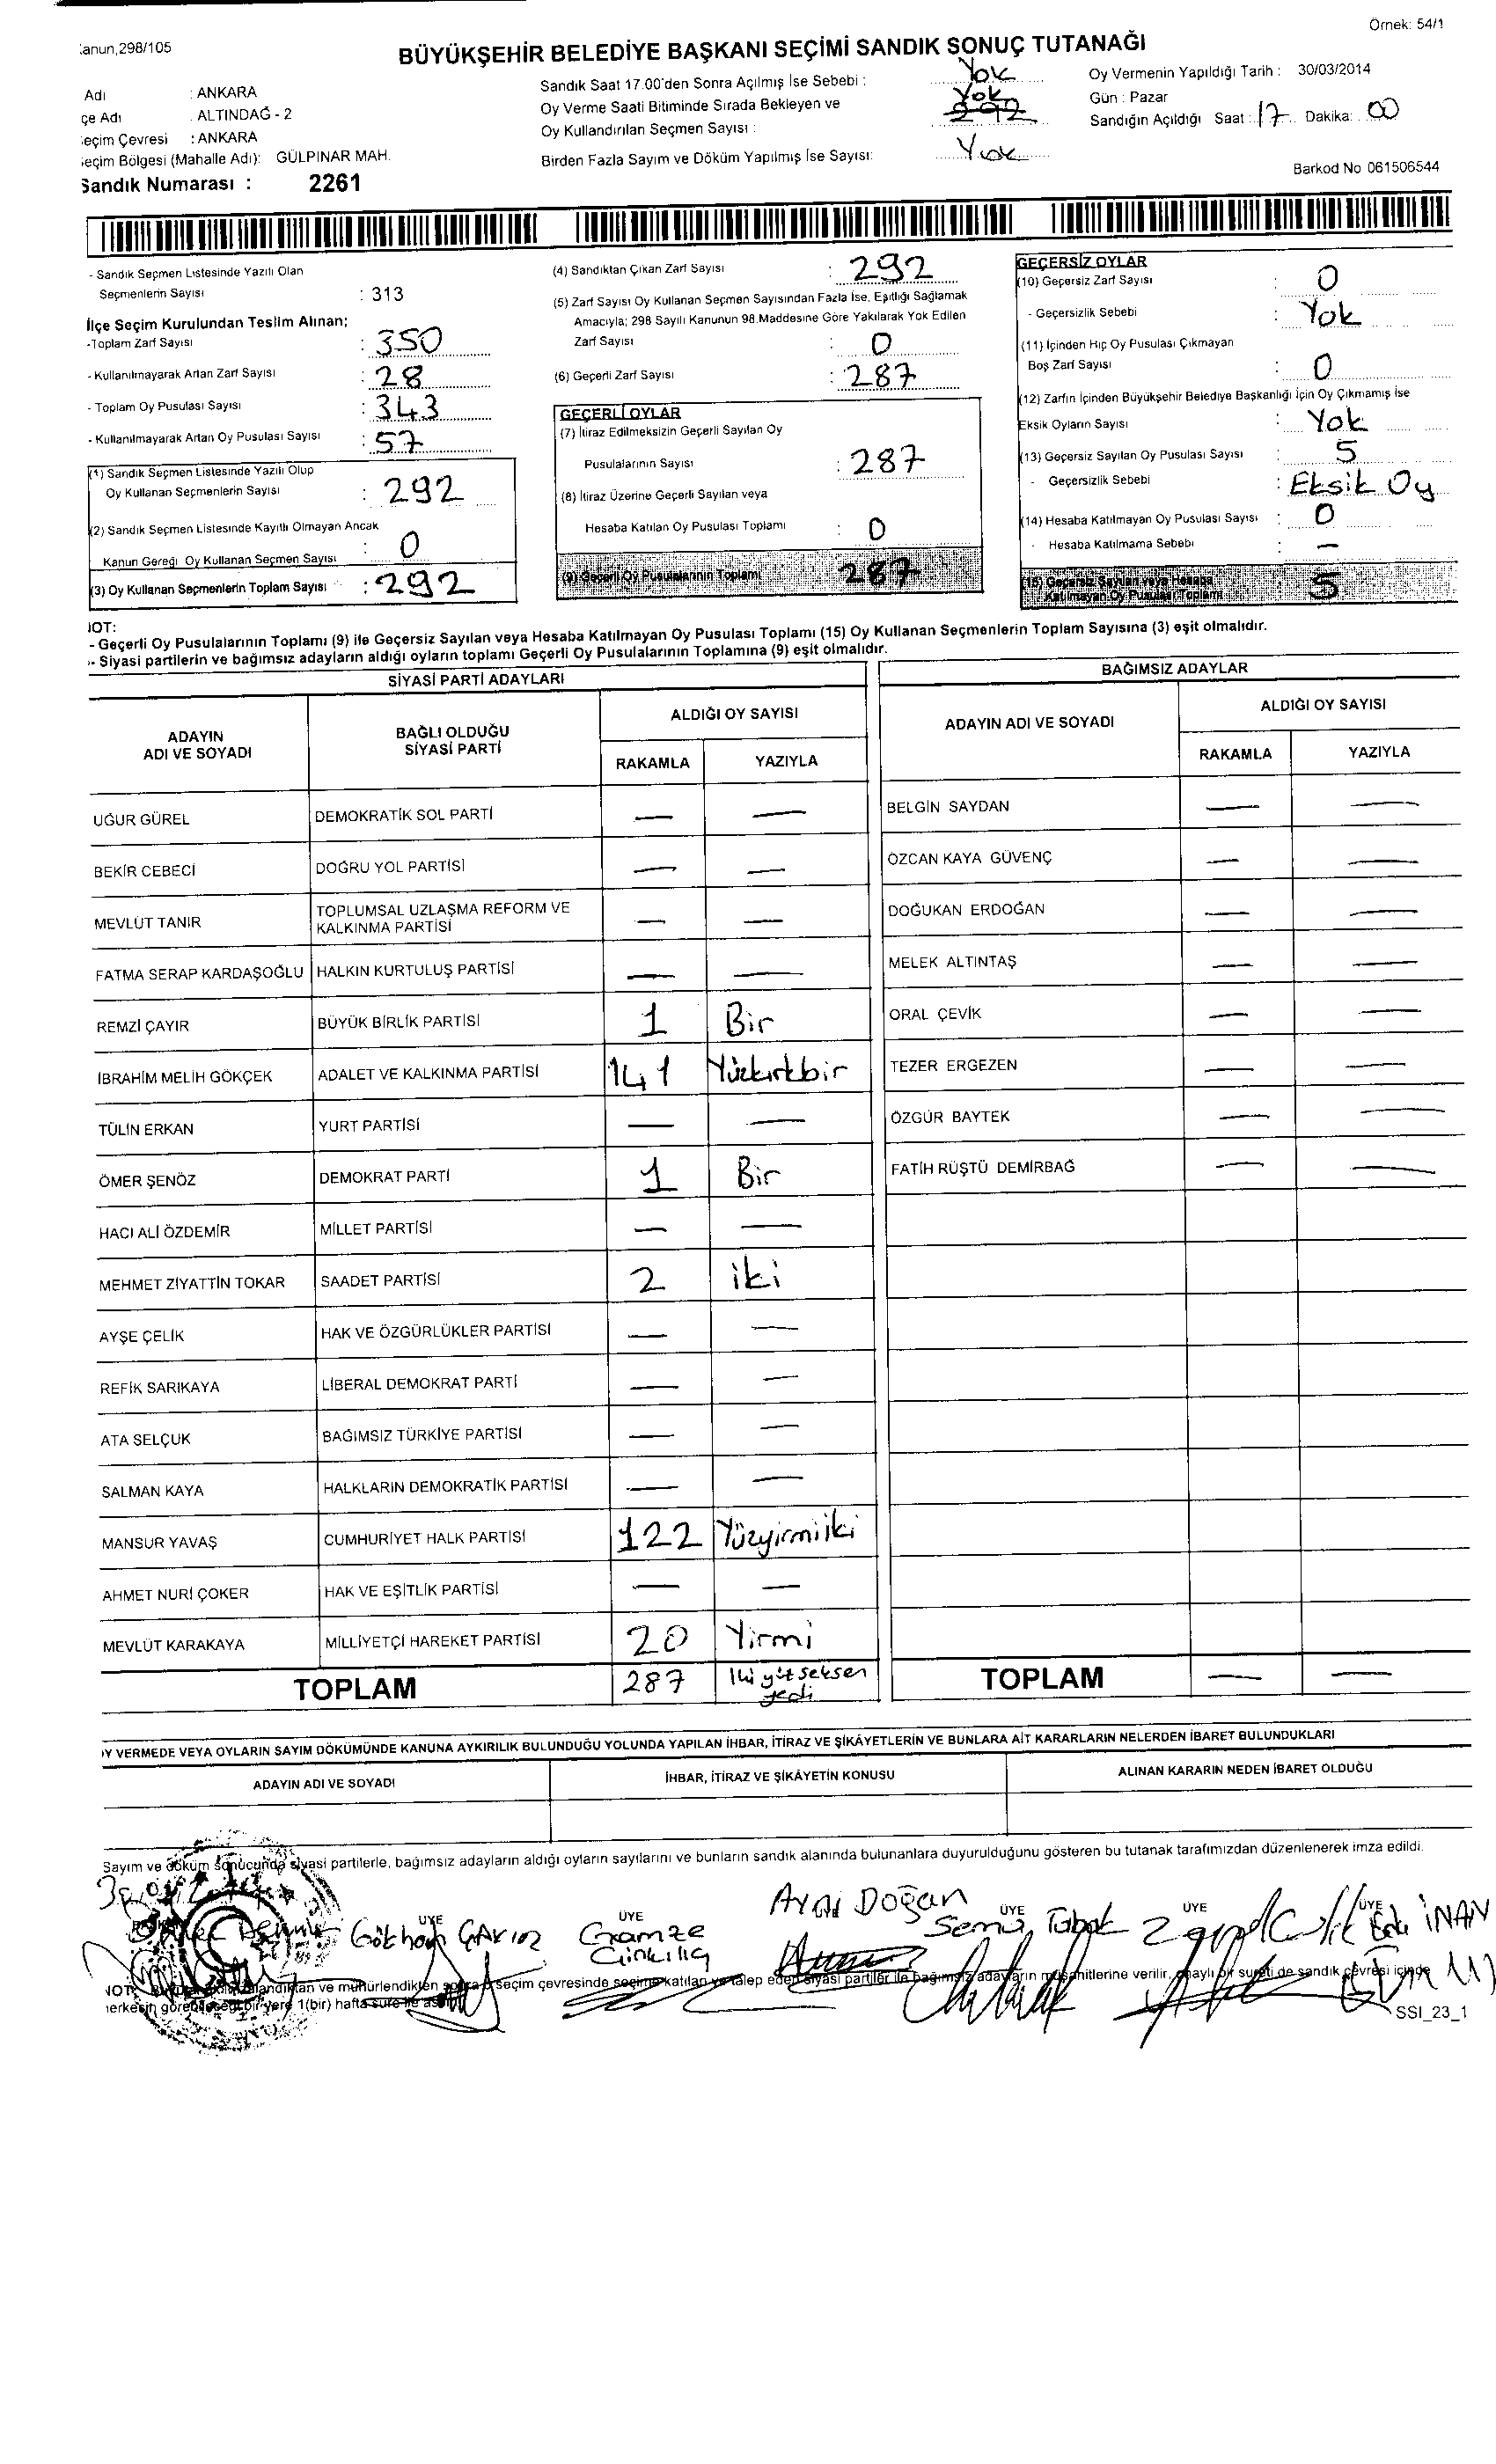 Örnek: 54/1
anun,298/105
BÜYÜKŞEHİR BELEDİYE BAŞKANI SEÇİMİ SANDIK SONUÇ TUTANAĞI
Adı : ANKARA
çe Adı ALTINDAĞ - 2
eçim Çevresi : ANKARA
eçim Bölgesi (Mahalle Adı): GÜLPINAR MAH.
Sandık Numarası : 2261
Sandık Saat 17.00'den Sonra Açılmış İse Sebebi : Yok
Oy Verme Saati Bitiminde Sırada Bekleyen ve Yok
Oy Kullandırılan Seçmen Sayısı : 292
Birden Fazla Sayım ve Döküm Yapılmış İse Sayısı: Yok
Oy Vermenin Yapıldığı Tarih : 30/03/2014
Gün : Pazar
Sandığın Açıldığı Saat : 17 Dakika: 00
Barkod No 061506544
- Sandık Seçmen Listesinde Yazılı Olan
Seçmenlerin Sayısı : 313
İlçe Seçim Kurulundan Teslim Alınan;
-Toplam Zarf Sayısı : 350
- Kullanılmayarak Artan Zarf Sayısı : 28
- Toplam Oy Pusulası Sayısı : 343
- Kullanılmayarak Artan Oy Pusulası Sayısı : 57
(1) Sandık Seçmen Listesinde Yazılı Olup
Oy Kullanan Seçmenlerin Sayısı : 292
(2) Sandık Seçmen Listesinde Kayıtlı Olmayan Ancak
Kanun Gereği Oy Kullanan Seçmen Sayısı : 0
(3) Oy Kullanan Seçmenlerin Toplam Sayısı : 292
(4) Sandıktan Çıkan Zarf Sayısı : 292
(5) Zarf Sayısı Oy Kullanan Seçmen Sayısından Fazla İse, Eşitliği Sağlamak
Amacıyla; 298 Sayılı Kanunun 98.Maddesine Göre Yakılarak Yok Edilen
Zarf Sayısı : 0
(6) Geçerli Zarf Sayısı : 287
GEÇERLİ OYLAR
(7) İtiraz Edilmeksizin Geçerli Sayılan Oy
Pusulalarının Sayısı : 287
(8) İtiraz Üzerine Geçerli Sayılan veya
Hesaba Katılan Oy Pusulası Toplamı : 0
(9) Geçerli Oy Pusulalarının Toplamı 287
GEÇERSİZ OYLAR
(10) Geçersiz Zarf Sayısı : 0
- Geçersizlik Sebebi : Yok
(11) İçinden Hiç Oy Pusulası Çıkmayan
Boş Zarf Sayısı : 0
(12) Zarfın İçinden Büyükşehir Belediye Başkanlığı İçin Oy Çıkmamış İse
Eksik Oyların Sayısı : Yok
(13) Geçersiz Sayılan Oy Pusulası Sayısı : 5
- Geçersizlik Sebebi : Eksik Oy
(14) Hesaba Katılmayan Oy Pusulası Sayısı : 0
- Hesaba Katılmama Sebebi : —
(15) Geçersiz Sayılan veya Hesaba
Katılmayan Oy Pusulası Toplamı 5
NOT:
- Geçerli Oy Pusulalarının Toplamı (9) ile Geçersiz Sayılan veya Hesaba Katılmayan Oy Pusulası Toplamı (15) Oy Kullanan Seçmenlerin Toplam Sayısına (3) eşit olmalıdır.
- Siyasi partilerin ve bağımsız adayların aldığı oyların toplamı Geçerli Oy Pusulalarının Toplamına (9) eşit olmalıdır.
SİYASİ PARTİ ADAYLARI
ADAYIN ADI VE SOYADI BAĞLI OLDUĞU SİYASİ PARTİ ALDIĞI OY SAYISI
RAKAMLA YAZIYLA
UĞUR GÜREL DEMOKRATİK SOL PARTİ — —
BEKİR CEBECİ DOĞRU YOL PARTİSİ — —
MEVLÜT TANIR TOPLUMSAL UZLAŞMA REFORM VE KALKINMA PARTİSİ — —
FATMA SERAP KARDAŞOĞLU HALKIN KURTULUŞ PARTİSİ — —
REMZİ ÇAYIR BÜYÜK BİRLİK PARTİSİ 1 Bir
İBRAHİM MELİH GÖKÇEK ADALET VE KALKINMA PARTİSİ 141 Yüzkırkbir
TÜLİN ERKAN YURT PARTİSİ — —
ÖMER ŞENÖZ DEMOKRAT PARTİ 1 Bir
HACI ALİ ÖZDEMİR MİLLET PARTİSİ — —
MEHMET ZİYATTİN TOKAR SAADET PARTİSİ 2 iki
AYŞE ÇELİK HAK VE ÖZGÜRLÜKLER PARTİSİ — —
REFİK SARIKAYA LİBERAL DEMOKRAT PARTİ — —
ATA SELÇUK BAĞIMSIZ TÜRKİYE PARTİSİ — —
SALMAN KAYA HALKLARIN DEMOKRATİK PARTİSİ — —
MANSUR YAVAŞ CUMHURİYET HALK PARTİSİ 122 Yüzyirmiiki
AHMET NURİ ÇOKER HAK VE EŞİTLİK PARTİSİ — —
MEVLÜT KARAKAYA MİLLİYETÇİ HAREKET PARTİSİ 20 Yirmi
TOPLAM 287 İkiyüzseksen yedi
BAĞIMSIZ ADAYLAR
ADAYIN ADI VE SOYADI ALDIĞI OY SAYISI
RAKAMLA YAZIYLA
BELGİN SAYDAN — —
ÖZCAN KAYA GÜVENÇ — —
DOĞUKAN ERDOĞAN — —
MELEK ALTINTAŞ — —
ORAL ÇEVİK — —
TEZER ERGEZEN — —
ÖZGÜR BAYTEK — —
FATİH RÜŞTÜ DEMİRBAĞ — —
TOPLAM — —
Y VERMEDE VEYA OYLARIN SAYIM DÖKÜMÜNDE KANUNA AYKIRILIK BULUNDUĞU YOLUNDA YAPILAN İHBAR, İTİRAZ VE ŞİKÂYETLERİN VE BUNLARA AİT KARARLARIN NELERDEN İBARET BULUNDUKLARI
ADAYIN ADI VE SOYADI İHBAR, İTİRAZ VE ŞİKÂYETİN KONUSU ALINAN KARARIN NEDEN İBARET OLDUĞU
Sayım ve döküm sonucunda siyasi partilerle, bağımsız adayların aldığı oyların sayılarını ve bunların sandık alanında bulunanlara duyurulduğunu gösteren bu tutanak tarafımızdan düzenlenerek imza edildi.
ÜYE ÜYE ÜYE ÜYE ÜYE
Gökhan Gamze Doğan Semis İNAN
ve mühürlendikten sonra seçim çevresinde seçime katılan ve talep eden siyasi partiler ile bağımsız adayların müşahitlerine verilir, onaylı bir sureti de sandık çevresi içinde
herkesin görebileceği bir yere 1(bir) hafta süre ile asılır
SSI_23_1